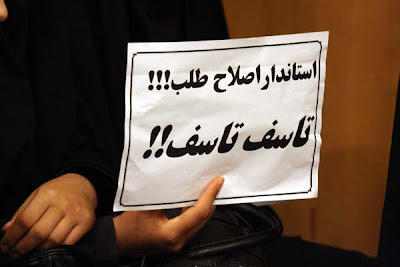 استاندار اصلاح طلب!!!
تاسف تاسف!!